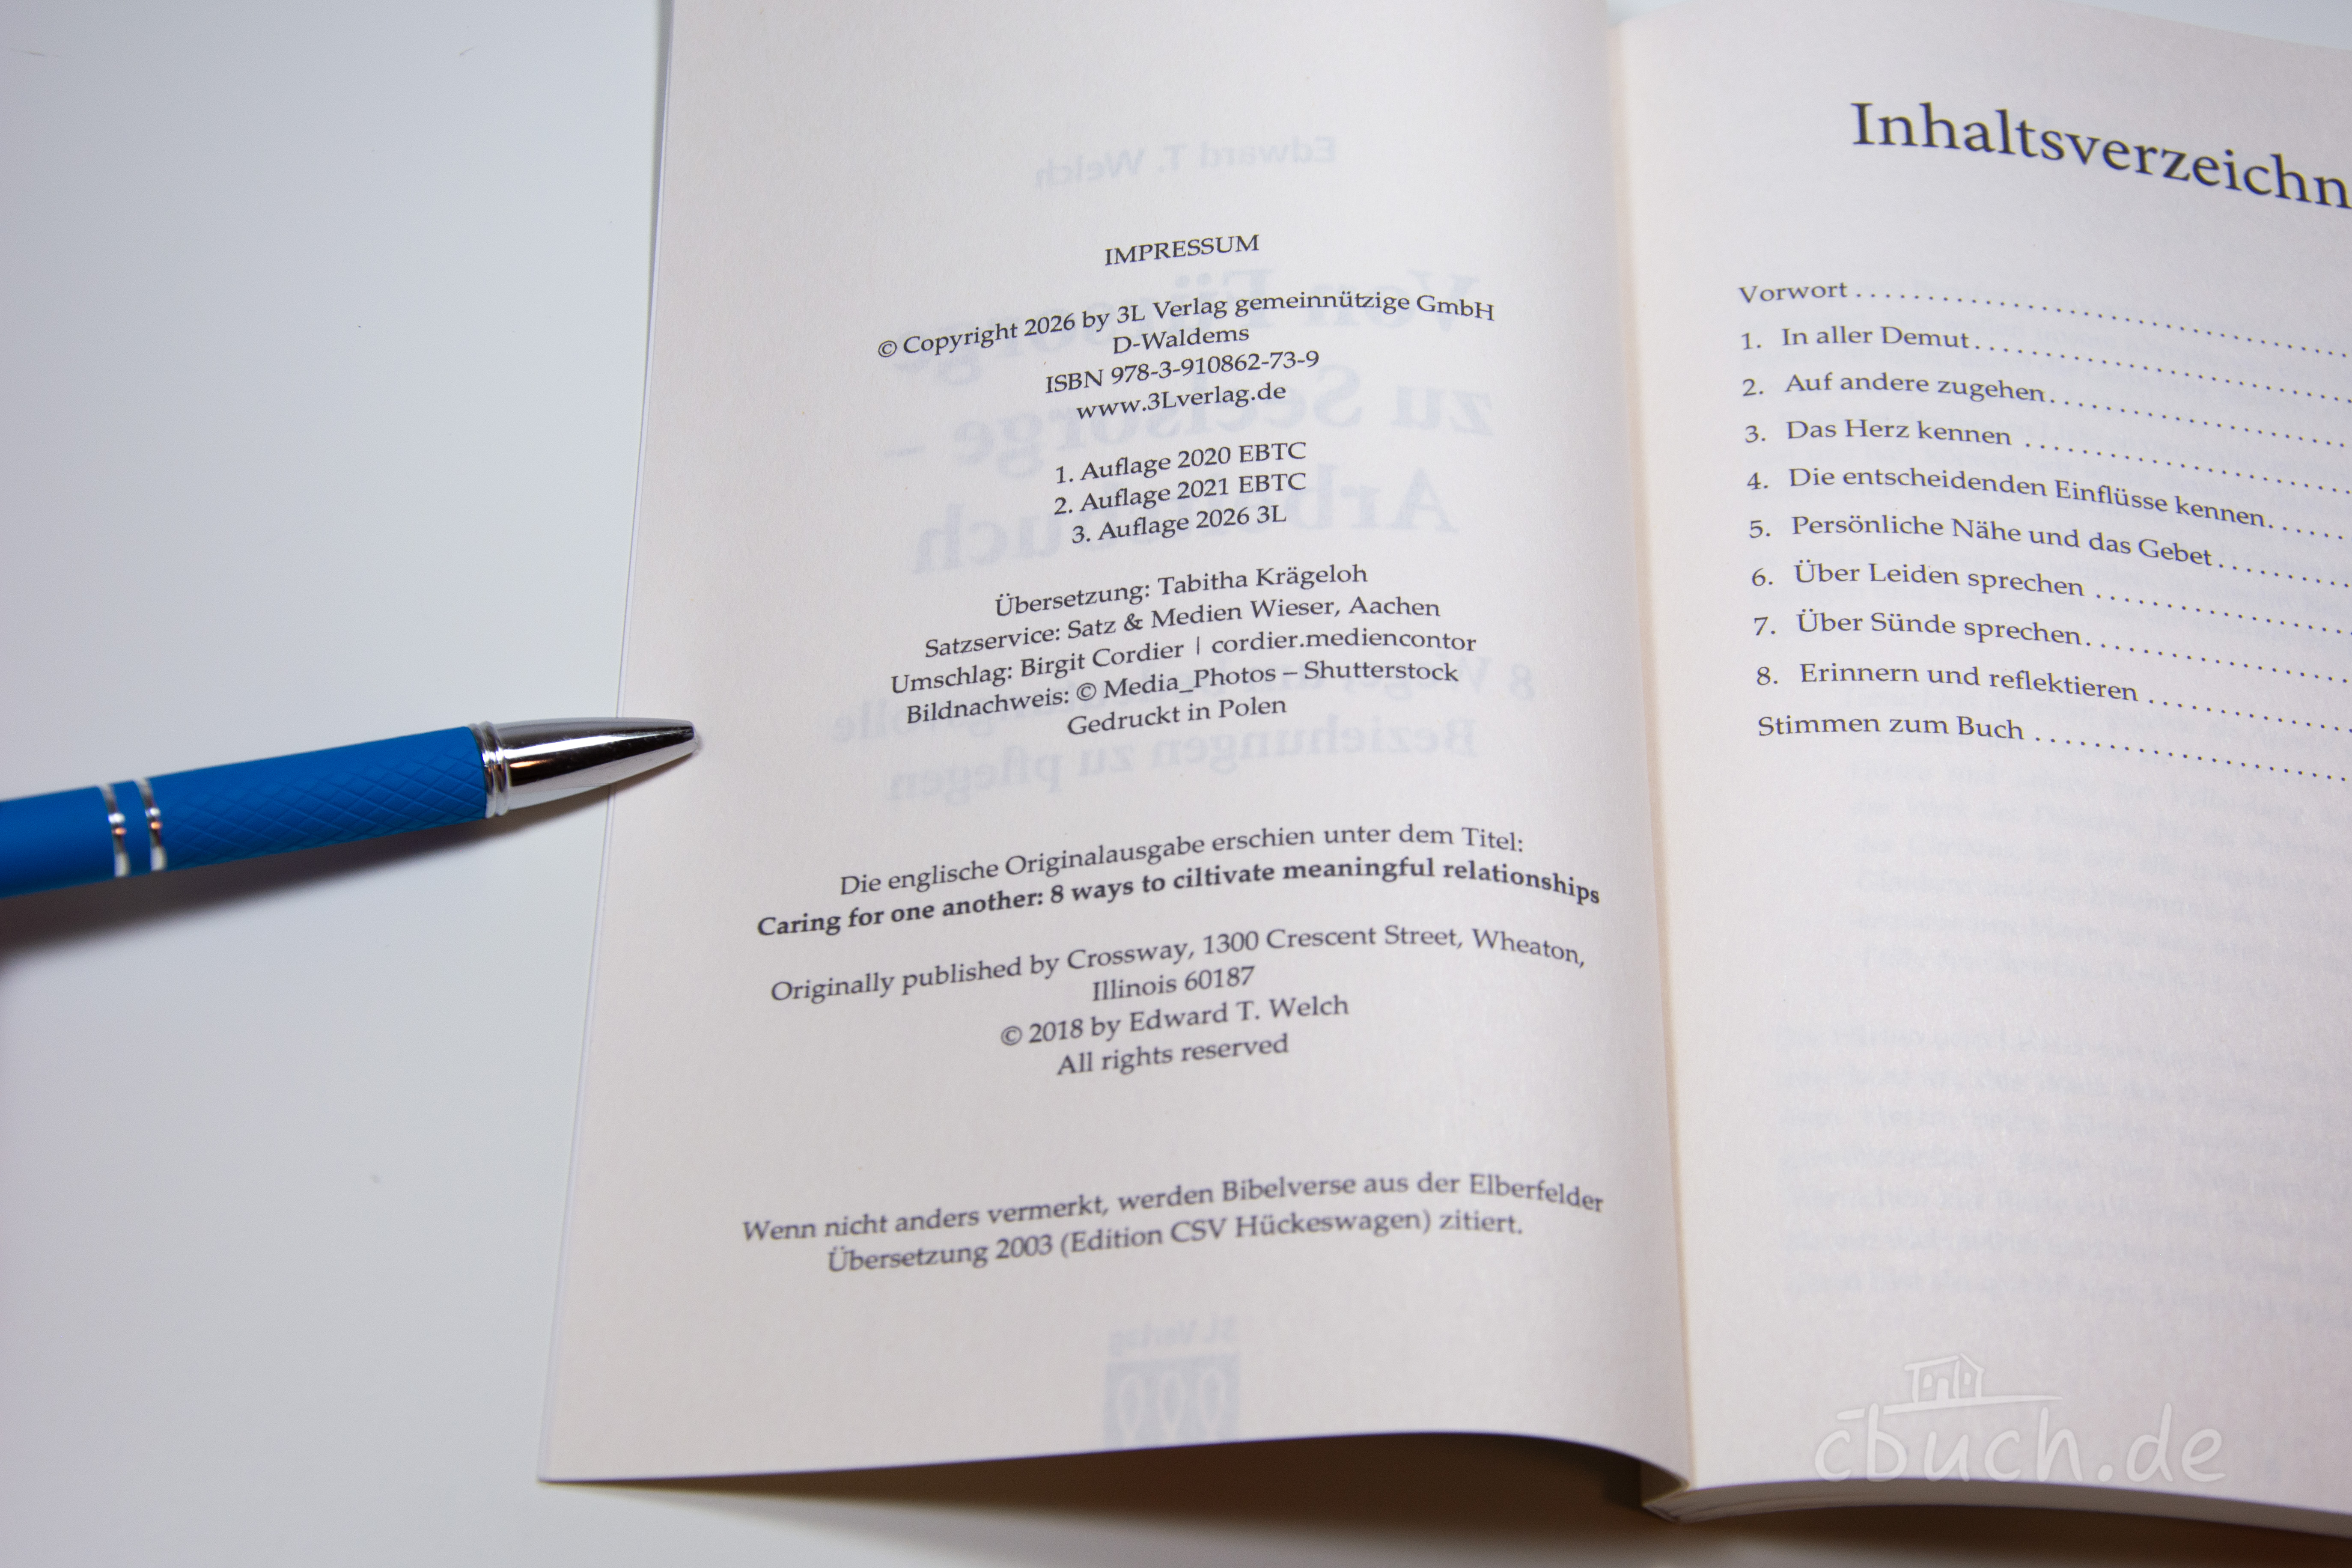 IMPRESSUM
© Copyright 2026 by 3L Verlag gemeinnützige GmbH
D-Waldems
ISBN 978-3-910862-73-9
www.3Lverlag.de
1. Auflage 2020 EBTC
2. Auflage 2021 EBTC
3. Auflage 2026 3L
Übersetzung: Tabitha Krägeloh
Satzservice: Satz & Medien Wieser, Aachen
Umschlag: Birgit Cordier | cordier.mediencontor
Bildnachweis: © Media_Photos – Shutterstock
Gedruckt in Polen
Die englische Originalausgabe erschien unter dem Titel:
Caring for one another: 8 ways to ciltivate meaningful relationships
Originally published by Crossway, 1300 Crescent Street, Wheaton,
Illinois 60187
© 2018 by Edward T. Welch
All rights reserved
Wenn nicht anders vermerkt, werden Bibelverse aus der Elberfelder
Übersetzung 2003 (Edition CSV Hückeswagen) zitiert.
Inhaltsverzeichn
Vorwort
1. In aller Demut
2. Auf andere zugehen
3. Das Herz kennen
4. Die entscheidenden Einflüsse kennen
5. Persönliche Nähe und das Gebet
6. Über Leiden sprechen
7. Über Sünde sprechen
8. Erinnern und reflektieren
Stimmen zum Buch
cbuch.de